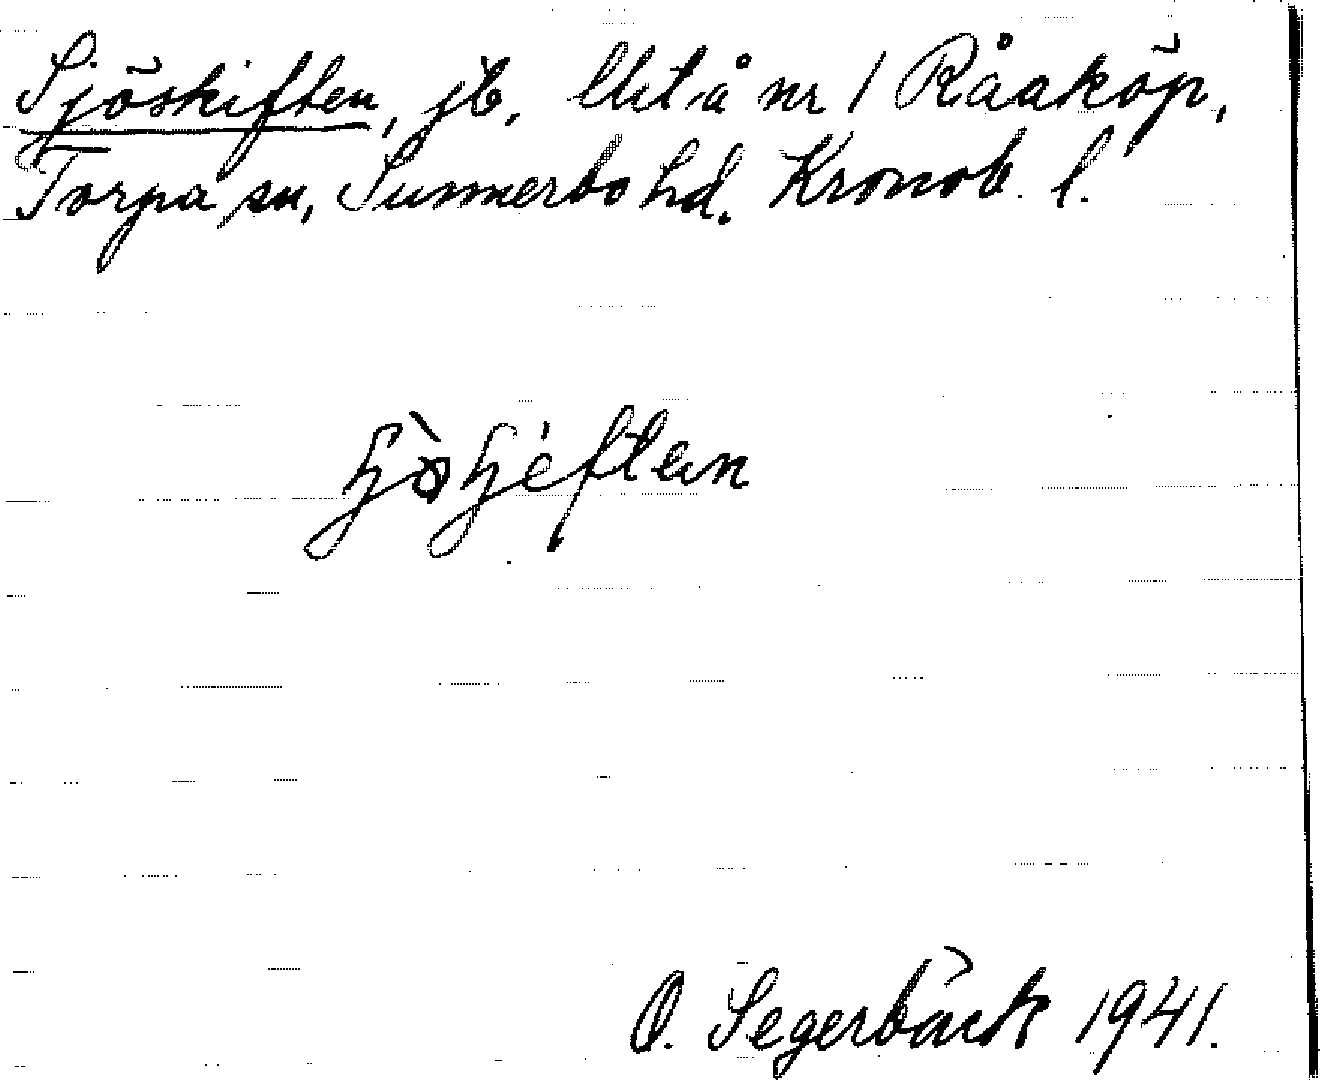 Sjöskiften, jb, Utå nr 1 Råaköp,
Torpa sn, Sunnerbo hd. Kronob. l.
O. Segerbäck 1941.